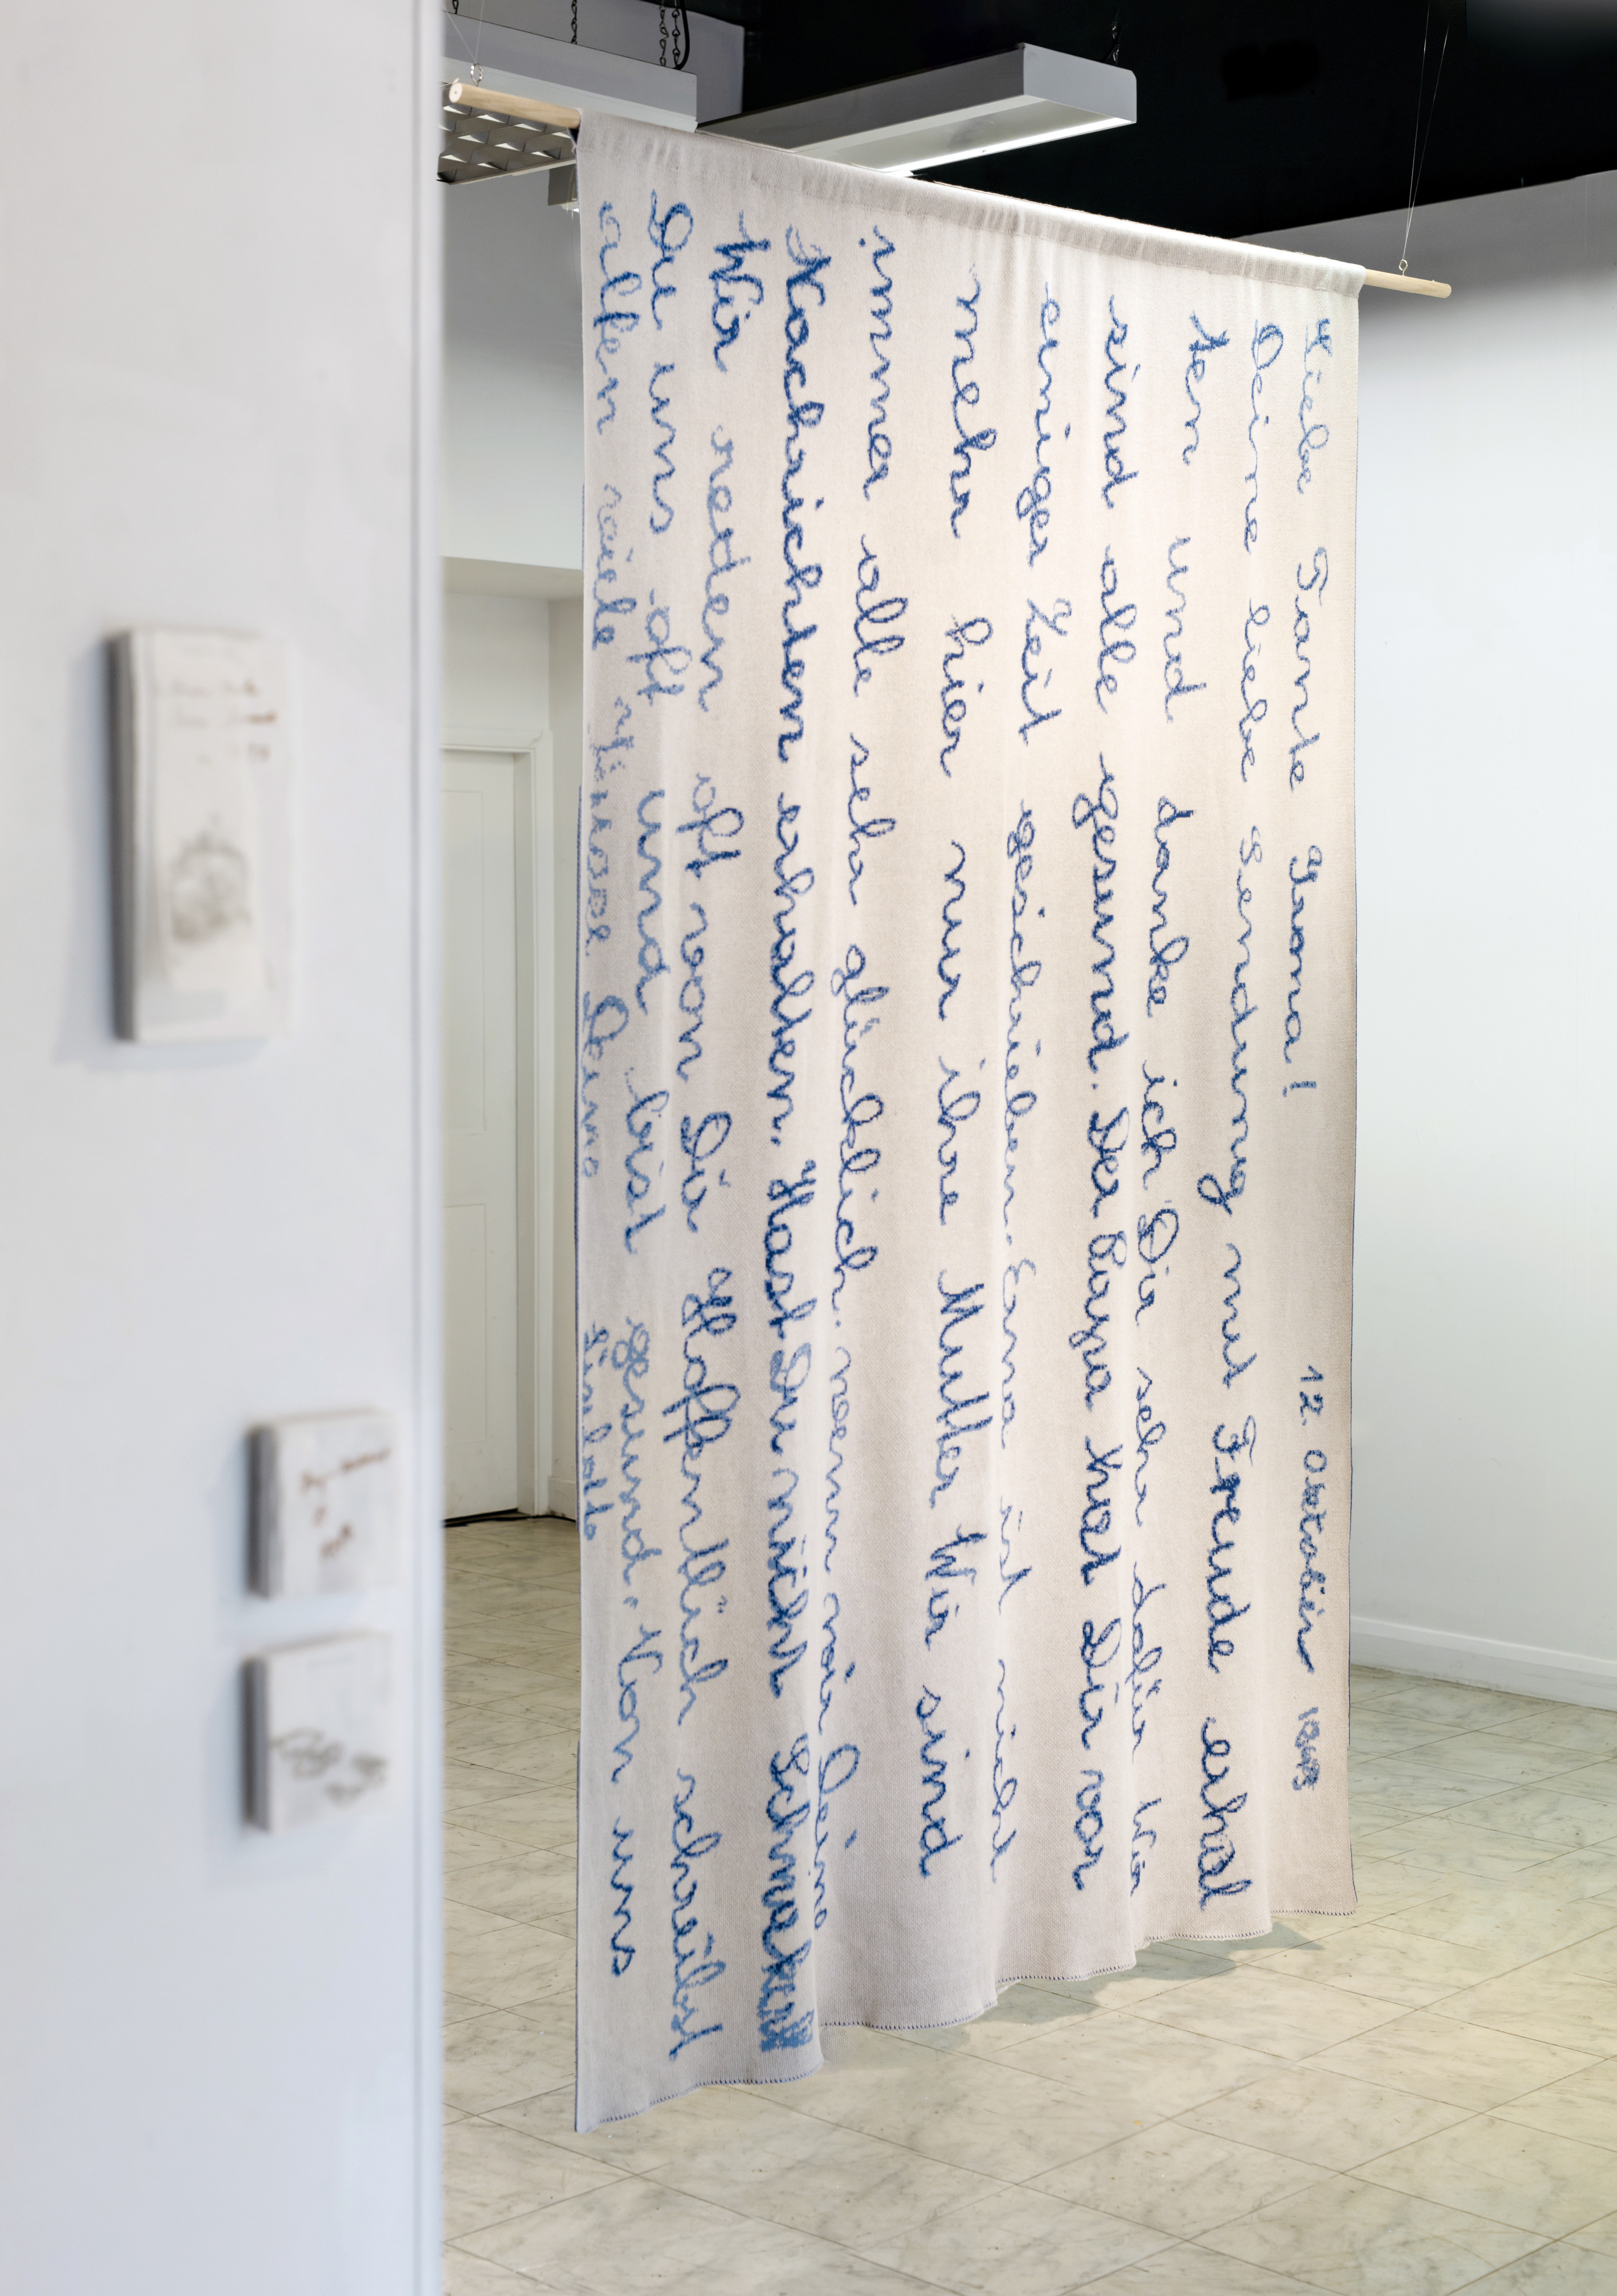 12. Oktober
Liebe Tante
Deine liebe Sendung mit Freude erhal
ten und danke ich Dir sehr dafür Wir
sind alle gesund. Der Papa hat Dir vor
einiger Zeit geschrieben. Erna ist nicht
mehr hier nur ihre Mutter Wir sind
immer alle sehr glücklich. wenn wir Deine
Nachrichten erhalten. Hast Du nicht
Wir reden oft von Dir Hoffentlich schreibst
Du uns oft und bist gesund. Von uns
allen viele Deine Liselotte